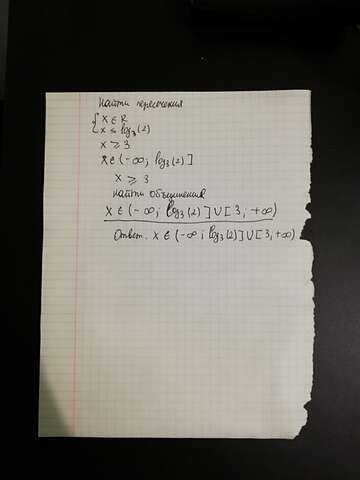 Найти пересечения
{ x ∈ R
{ x ≤ log₃(2)
x ⩾ 3
x ∈ (-∞; log₃(2)]
x ⩾ 3
найти объединения
x ∈ (-∞; log₃(2)] ∪ [3; +∞)
Ответ. x ∈ (-∞; log₃(2)] ∪ [3; +∞)